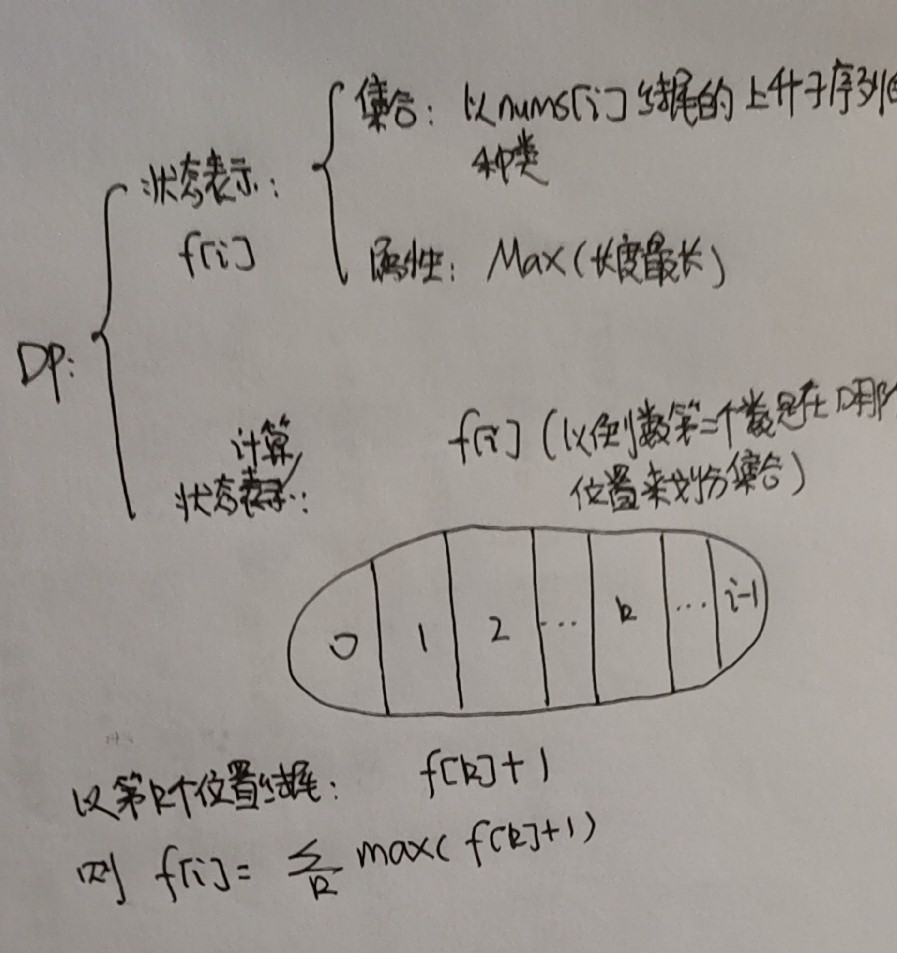 集合：以nums[i]结尾的上升子序列
种类
状态表示：
f[i]
属性：Max(长度最长)
DP：
计算
f[i](以倒数第二个数是在哪
状态表示：
位置来划分集合)
0 1 2 ... k ... i-1
以第k个位置结尾： f[k]+1
则 f[i]= Σ max( f[k]+1)
k